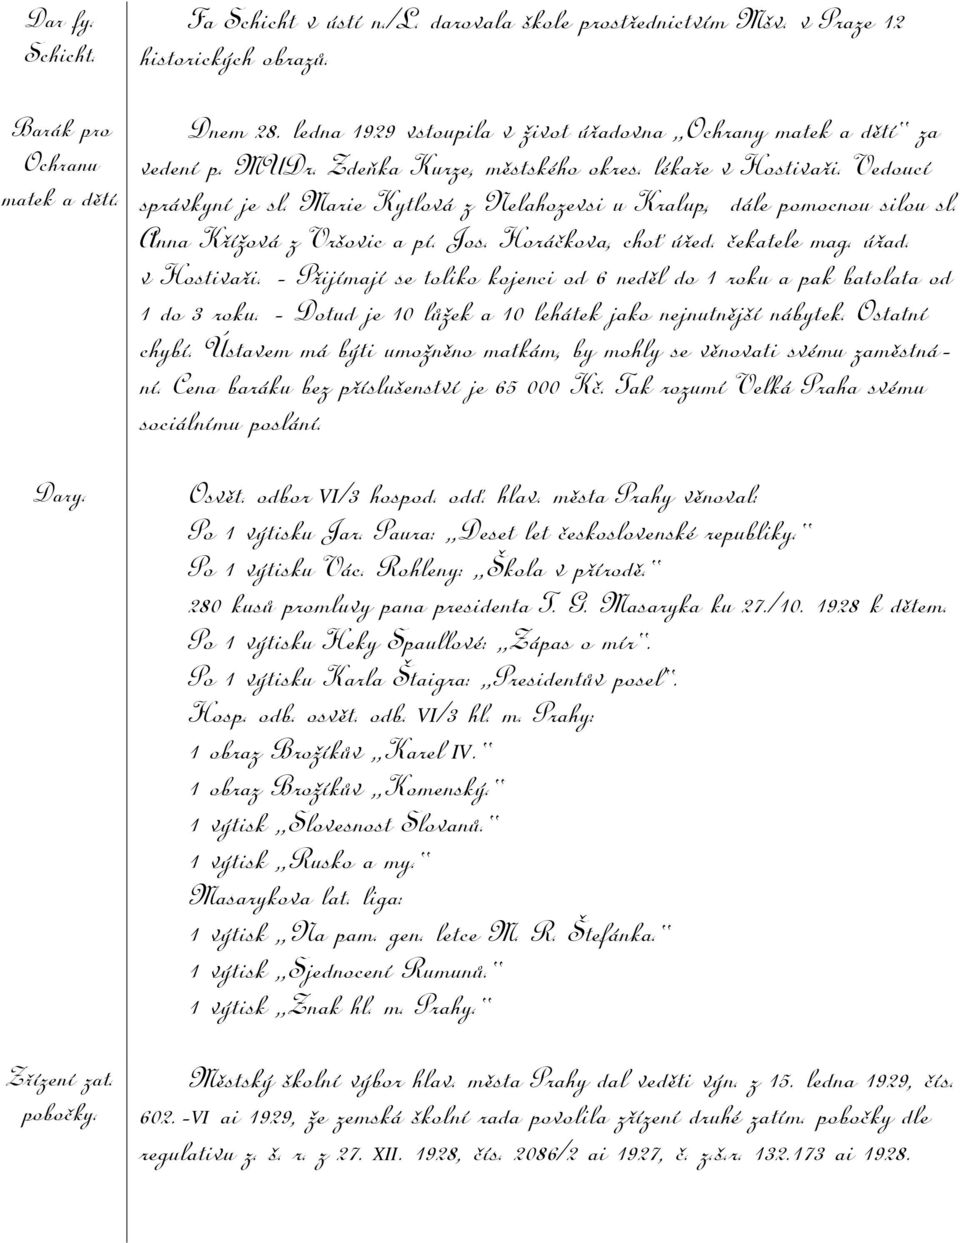 Dar fy.
Schicht.
Fa Schicht v ústí n./L. darovala škole prostřednictvím Mšv. v Praze 12
historických obrazů.
Barák pro
Ochranu
matek a dětí.
Dnem 28. ledna 1929 vstoupila v život úřadovna „Ochrany matek a dětí“ za
vedení p. MUDr. Zdeňka Kurze, městského okres. lékaře v Hostivaři. Vedoucí
správkyní je sl. Marie Kytlová z Nelahozevsi u Kralup, dále pomocnou silou sl.
Anna Křížová z Vršovic a pí. Jos. Horáčkova, choť úřed. čekatele mag. úřad.
v Hostivaři. - Přijímají se toliko kojenci od 6 neděl do 1 roku a pak batolata od
1 do 3 roku. - Dotud je 10 lůžek a 10 lehátek jako nejnutnější nábytek. Ostatní
chybí. Ústavem má býti umožněno matkám, by mohly se věnovati svému zaměstná-
ní. Cena baráku bez příslušenství je 65 000 Kč. Tak rozumí Velká Praha svému
sociálnímu poslání.
Dary.
Osvět. odbor VI/3 hospod. odď. hlav. města Prahy věnoval:
Po 1 výtisku Jar. Paura: „Deset let československé republiky.“
Po 1 výtisku Vác. Rohleny: „Škola v přírodě.“
280 kusů promluvy pana presidenta T. G. Masaryka ku 27./10. 1928 k dětem.
Po 1 výtisku Heky Spaullové: „Zápas o mír“.
Po 1 výtisku Karla Štaigra: „Presidentův posel“.
Hosp. odb. osvět. odb. VI/3 hl. m. Prahy:
1 obraz Brožíkův „Karel IV.“
1 obraz Brožíkův „Komenský.“
1 výtisk „Slovesnost Slovanů.“
1 výtisk „Rusko a my.“
Masarykova lat. liga:
1 výtisk „Na pam. gen. letce M. R. Štefánka.“
1 výtisk „Sjednocení Rumunů.“
1 výtisk „Znak hl. m. Prahy.“
Zřízení zat.
pobočky.
Městský školní výbor hlav. města Prahy dal veděti výn. z 15. ledna 1929, čís.
602.-VI ai 1929, že zemská školní rada povolila zřízení druhé zatím. pobočky dle
regulativu z. š. r. z 27. XII. 1928, čís. 2086/2 ai 1927, č. z.š.r. 132.173 ai 1928.